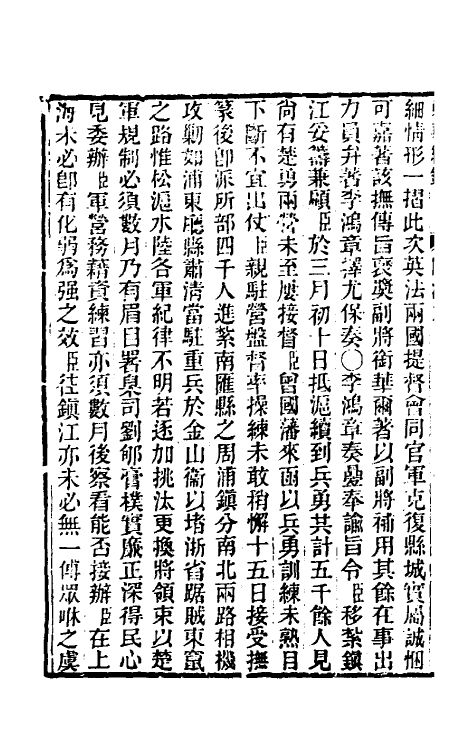 細情形一摺此次英法兩國提督會同官軍克復縣城實屬誠悃
可嘉著該撫傳旨褒獎副將銜華爾著以副將補用其餘在事出
力員弁著李鴻章擇尤保奏〇李鴻章奏疊奉諭旨令臣移紮鎮
江妥籌兼顧臣於三月初十日抵滬續到兵勇共計五千餘人見
尚有楚勇兩營未至屢接督臣曾國藩來函以兵勇訓練未熟目
下斷不宜出仗臣親駐營盤督率操練未敢稍懈十五日接受撫
篆後卽派所部四千人進紮南匯縣之周浦鎮分南北兩路相機
攻勦如浦東廳縣肅清當駐重兵於金山衞以堵浙省踞賊東竄
之路惟松滬水陸各軍紀律不明若逐加挑汰更換將領束以楚
軍規制必須數月乃有眉目署臬司劉郇膏樸實廉正深得民心
見委辦臣軍營務藉資練習亦須數月後察看能否接辦臣在上
海未必卽有化弱爲强之效臣往鎮江亦未必無一傅眾咻之虞